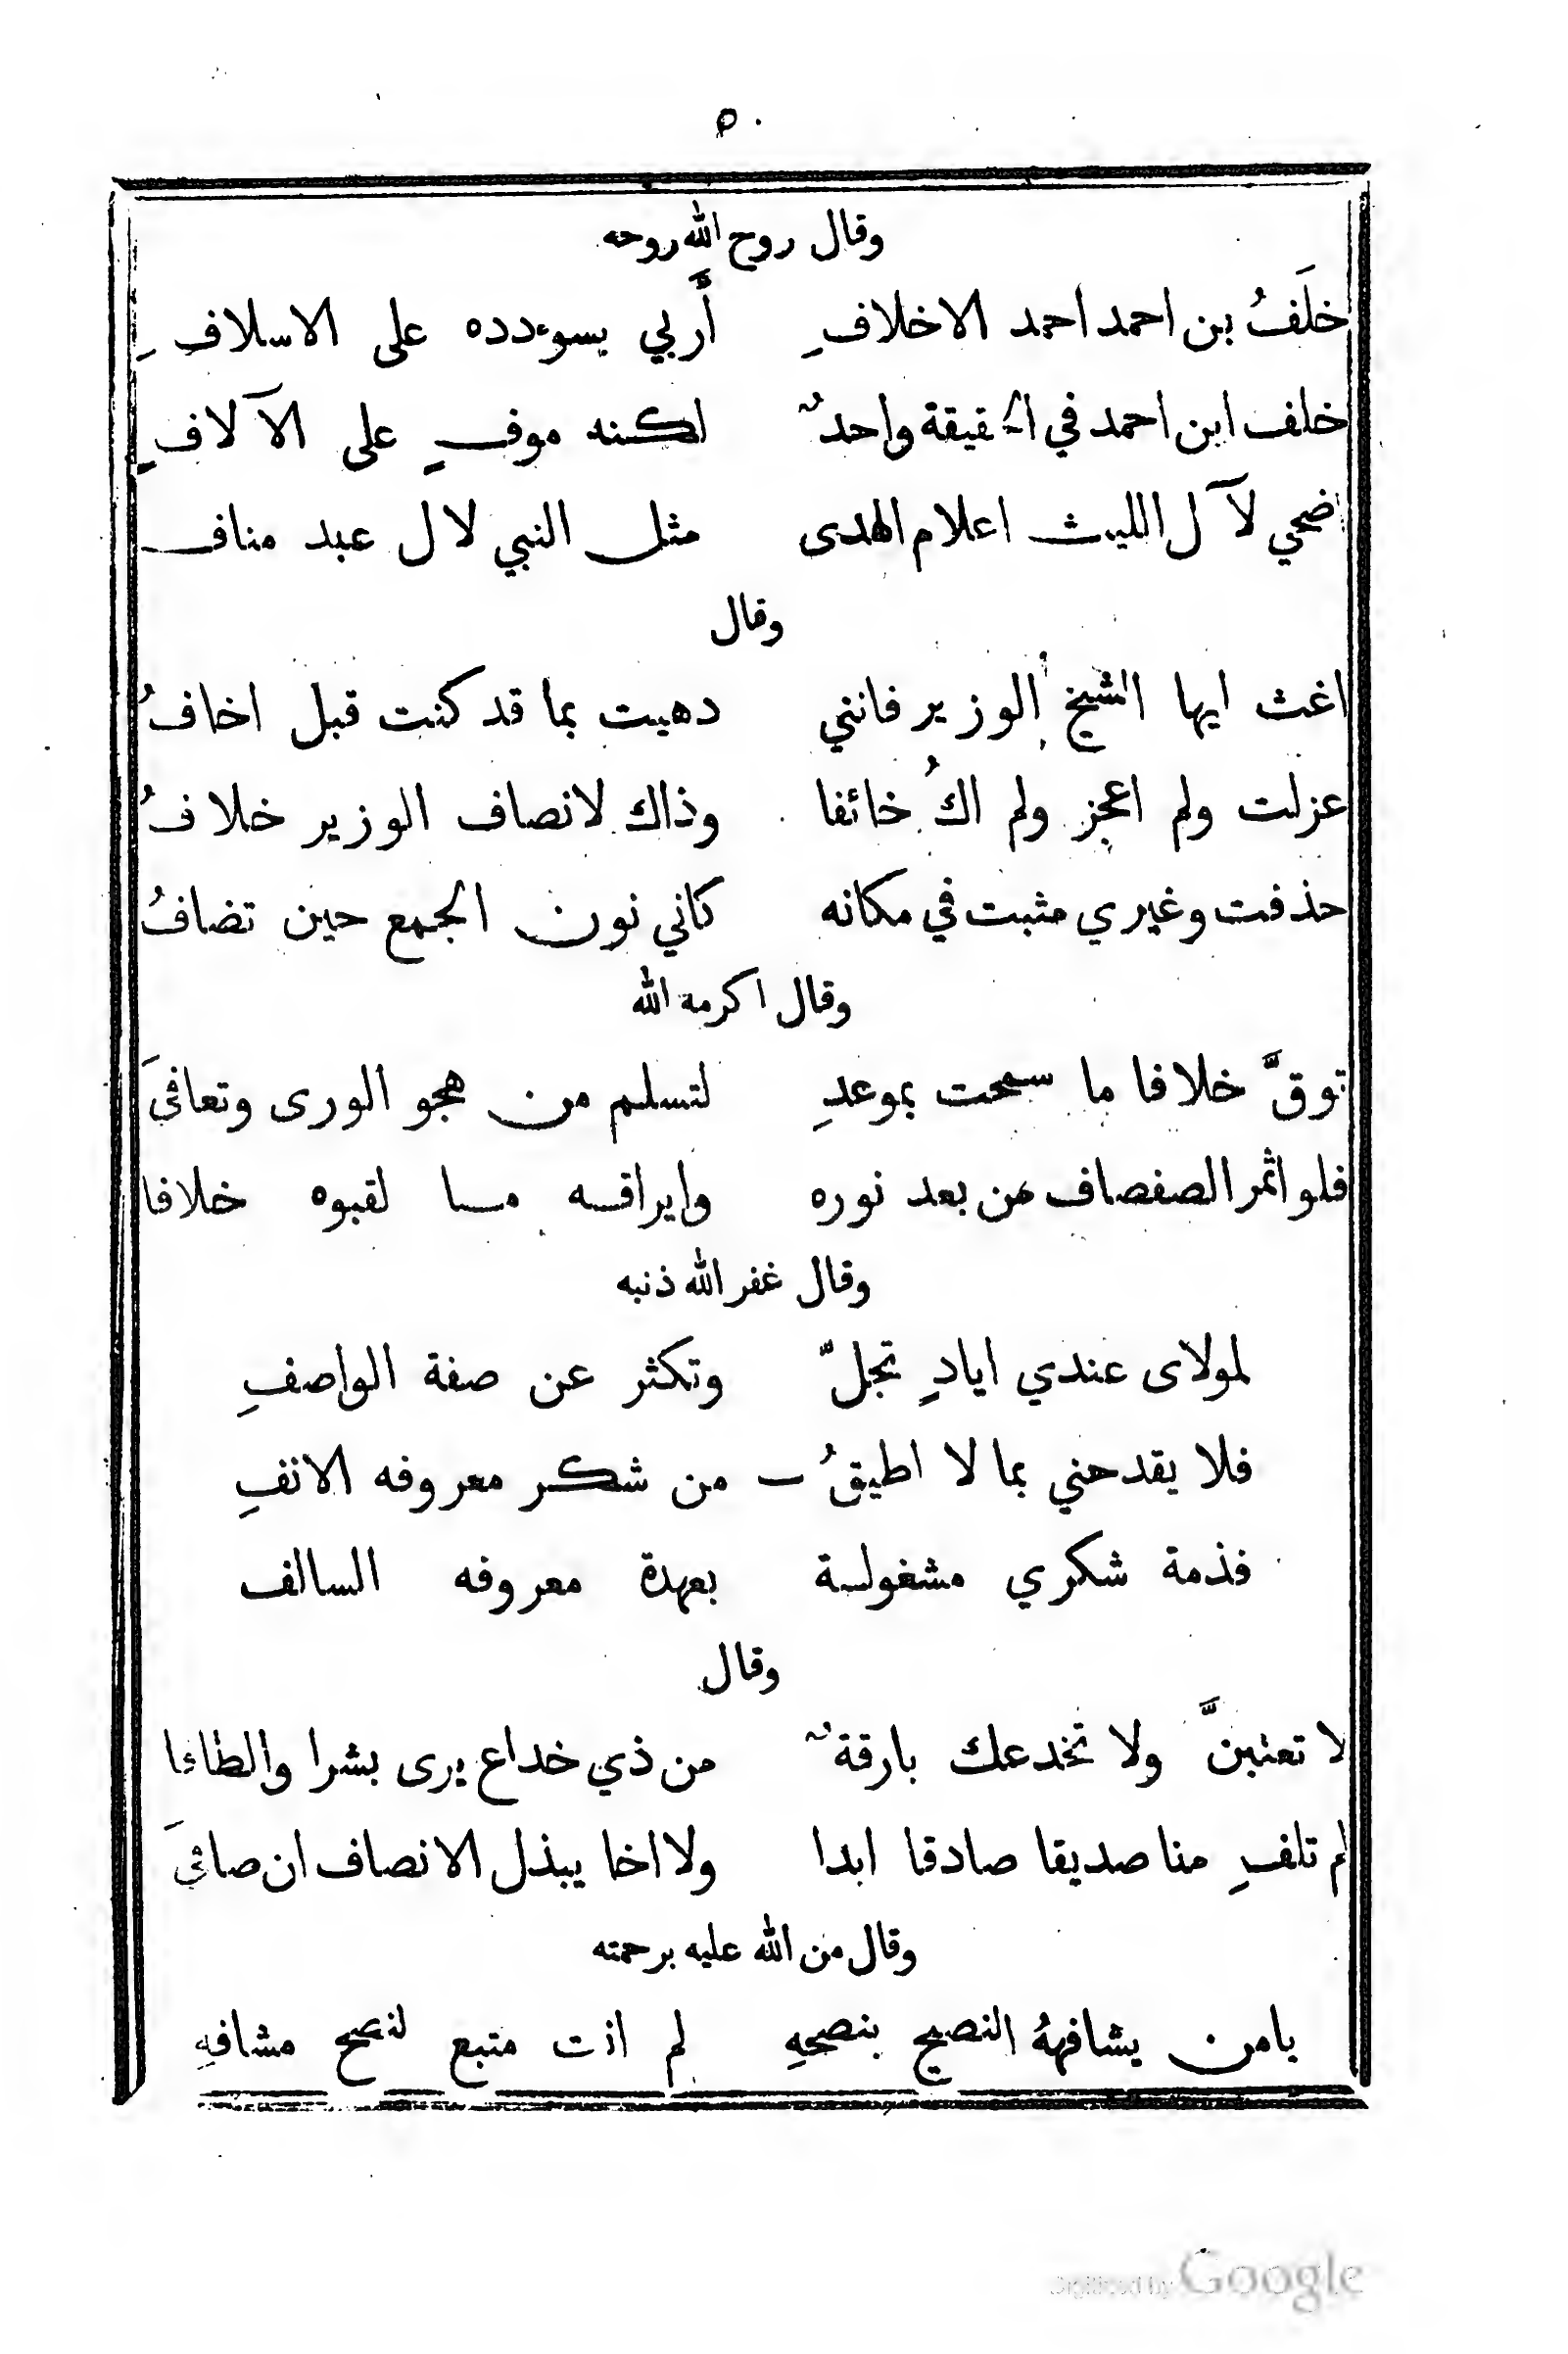 ٥٠
وقال روح الله روحه
خلَفُ بن احمد احمد الاخلافِ أَربي بسوءدده على الاسلافِ
خلف ابن احمد في الحقيقة واحدٌ لكنه موفٍ على الآلافِ
اضحي لآل الليث اعلام الهدى مثل النبي لال عبد مناف
وقال
اغث ايها الشيخ الوزير فانني دهيت بما قد كنت قبل اخافُ
عزلت ولم اعجز ولم اكُ خائفا وذاك لانصاف الوزير خلافُ
حذفت وغيري مثبت في مكانه كاني نون الجمع حين تضافُ
وقال اكرمه الله
توقَّ خلافا ما سمحت بموعدِ لتسلم من هجو الورى وتعافىَ
فلو اثمر الصفصاف من بعد نوره وايراقه مسا لقبوه خلافا
وقال غفر الله ذنبه
لمولاى عندي ايادٍ تجلّ وتكثر عن صفة الواصفِ
فلا يقدحني بما لا اطيقُ – من شكر معروفه الانفِ
فذمة شكري مشغولة بعهدة معروفه السالف
وقال
لا تعتبنَّ ولا تخدعك بارقةٌ من ذي خداع يرى بشرا والطافا
لم تلفِ منا صديقا صادقا ابدا ولا اخا يبذل الانصاف ان صافىَ
وقال من الله عليه برحمته
يامن يشافههُ النصيح بنصحهِ لم انت متبع لنصح مشافهِ
Digitized by Google